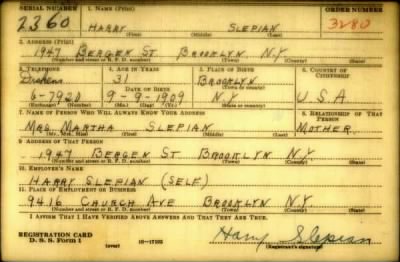 SERIAL NUMBER 1. NAME (Print) ORDER NUMBER
2360 HARRY SLEPIAN 3280
(First) (Middle) (Last)
2. ADDRESS (Print)
1947 BERGEN ST. BROOKLYN N.Y.
(Number and street or R. F. D. number) (Town) (County) (State)
3. TELEPHONE 4. AGE IN YEARS 5. PLACE OF BIRTH 6. COUNTRY OF CITIZENSHIP
Dickens 31 BROOKLYN
DATE OF BIRTH (Town or county)
6-7920 9-9-1909 N.Y. U.S.A
(Exchange) (Number) (Mo.) (Day) (Yr.) (State or country)
7. NAME OF PERSON WHO WILL ALWAYS KNOW YOUR ADDRESS 8. RELATIONSHIP OF THAT PERSON
MRS. MARTHA SLEPIAN MOTHER
(Mr., Mrs., Miss) (First) (Middle) (Last)
9. ADDRESS OF THAT PERSON
1947 BERGEN ST. BROOKLYN N.Y.
(Number and street or R. F. D. number) (Town) (County) (State)
10. EMPLOYER'S NAME
HARRY SLEPIAN (SELF)
11. PLACE OF EMPLOYMENT OR BUSINESS
9416 CHURCH AVE BROOKLYN N.Y.
(Number and street or R. F. D. number) (Town) (County) (State)
I AFFIRM THAT I HAVE VERIFIED ABOVE ANSWERS AND THAT THEY ARE TRUE.
REGISTRATION CARD
D. S. S. Form 1 (over) Harry Slepian
(Registrant's signature)